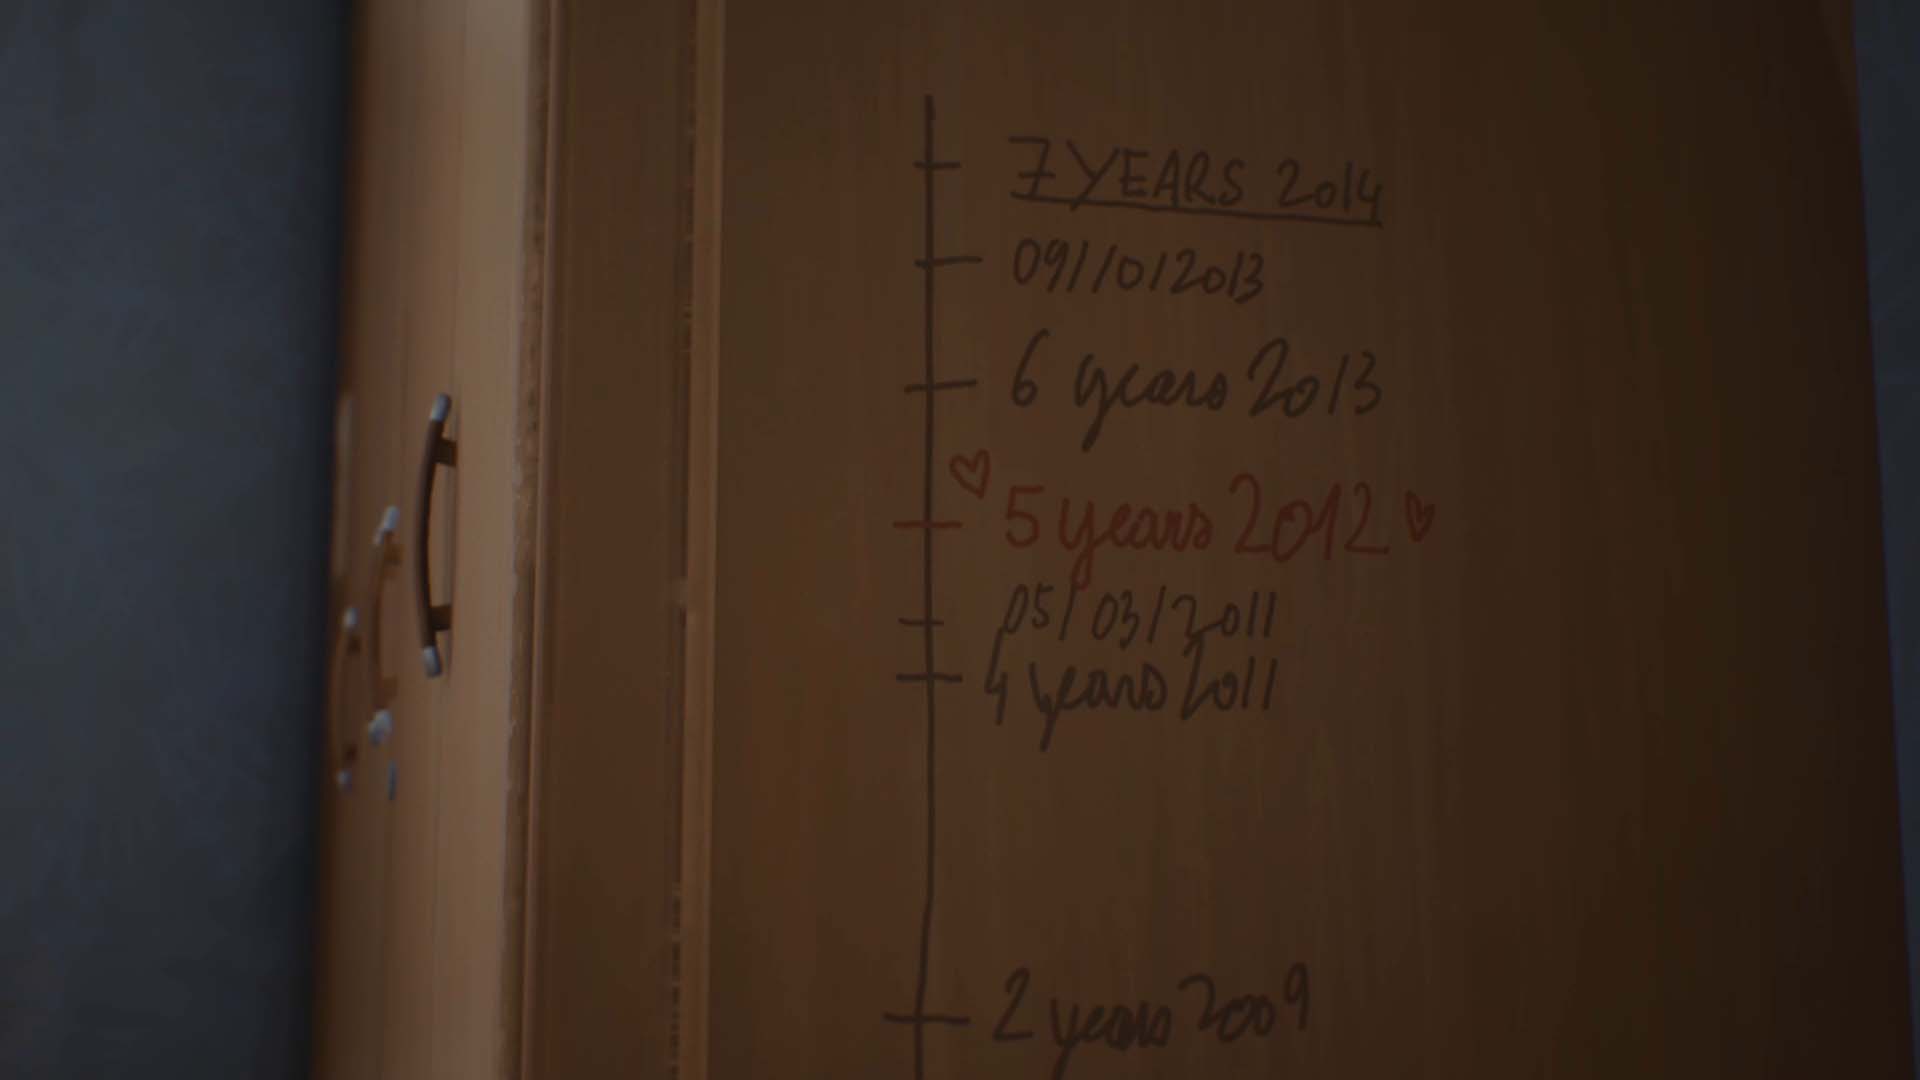 7 YEARS 2014
09/10/2013
6 years 2013
♡ 5 years 2012 ♡
05/03/2011
4 years 2011
2 years 2009